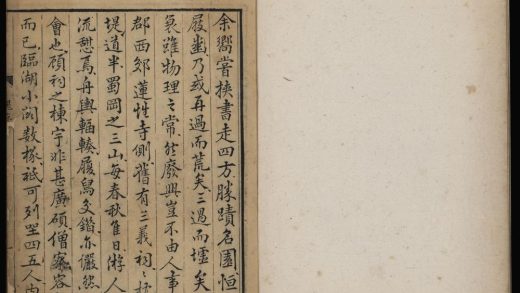 余嚮嘗挾書走四方勝蹟名園恒
屐齒乃或再過而荒矣三過而墟矣
衰雖物理之常然廢興豈不由人事
郡西郊蓮性寺側舊有三義祠
堤道半蜀岡之三山每春秋佳日游人
流憩焉舟輿輻輳履舄交錯亦儼然
會也顧祠之棟宇非甚廣碩僧寮客
而已臨湖小閣數椽祗可列坐四五人